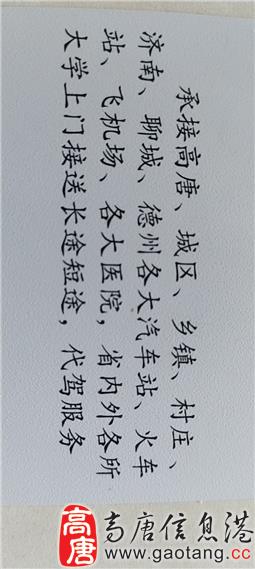 承接高唐、城区、乡镇、村庄、
济南、聊城、德州各大汽车站、火车
站、飞机场、各大医院，省内外各所
大学上门接送长途短途，代驾服务
高唐
高唐信息港
www.gaotang.cc